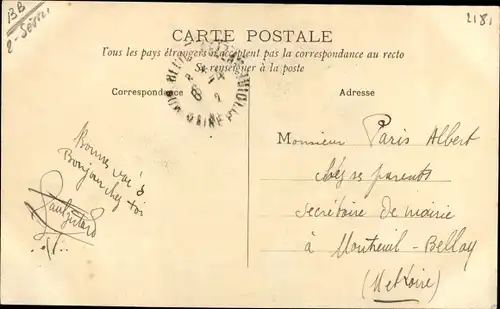 BB
2-Sèvres
2181
CARTE POSTALE
Tous les pays étrangers n'acceptent pas la correspondance au recto
Se renseigner à la poste
Correspondance
Adresse
Bonnes vac
Bonjour chez toi
Monsieur Paris Albert
chez ses parents
secrétaire de mairie
à Montreuil-Bellay
(M et Loire)